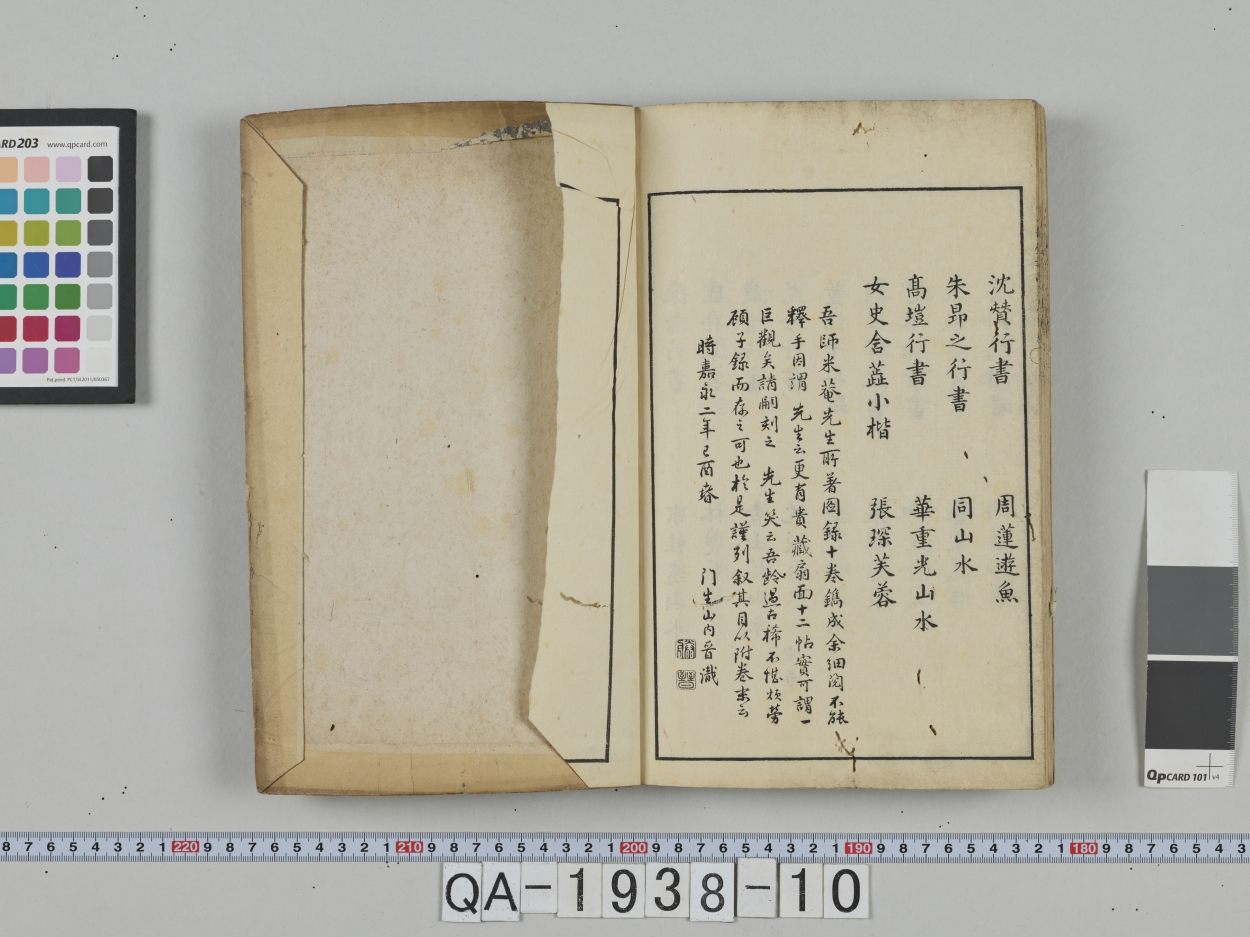 沈贊行書 周蓮遊魚
朱昂之行書 同山水
髙塏行書 華重光山水
女史舍蕋小楷 張琛芙蓉
吾師米菴先生所著圖錄十巻鐫成余細閱不能
釋手因謂 先生云更有貴藏扇面十二帖實可謂一
巨觀矣請嗣刻之 先生笑云吾齡過古稀不堪煩勞
願子錄而存之可也於是謹列叙其目以附巻末云
時嘉永二年己酉春 门生山内晋識
CARD 203 www.qpcard.com
QpCARD 101 v4
8 7 6 5 4 3 2 1 220 9 8 7 6 5 4 3 2 1 210 9 8 7 6 5 4 3 2 1 200 9 8 7 6 5 4 3 2 1 190 9 8 7 6 5 4 3 2 1 180 9 8 7 6 5 4 3
QA-1938-10